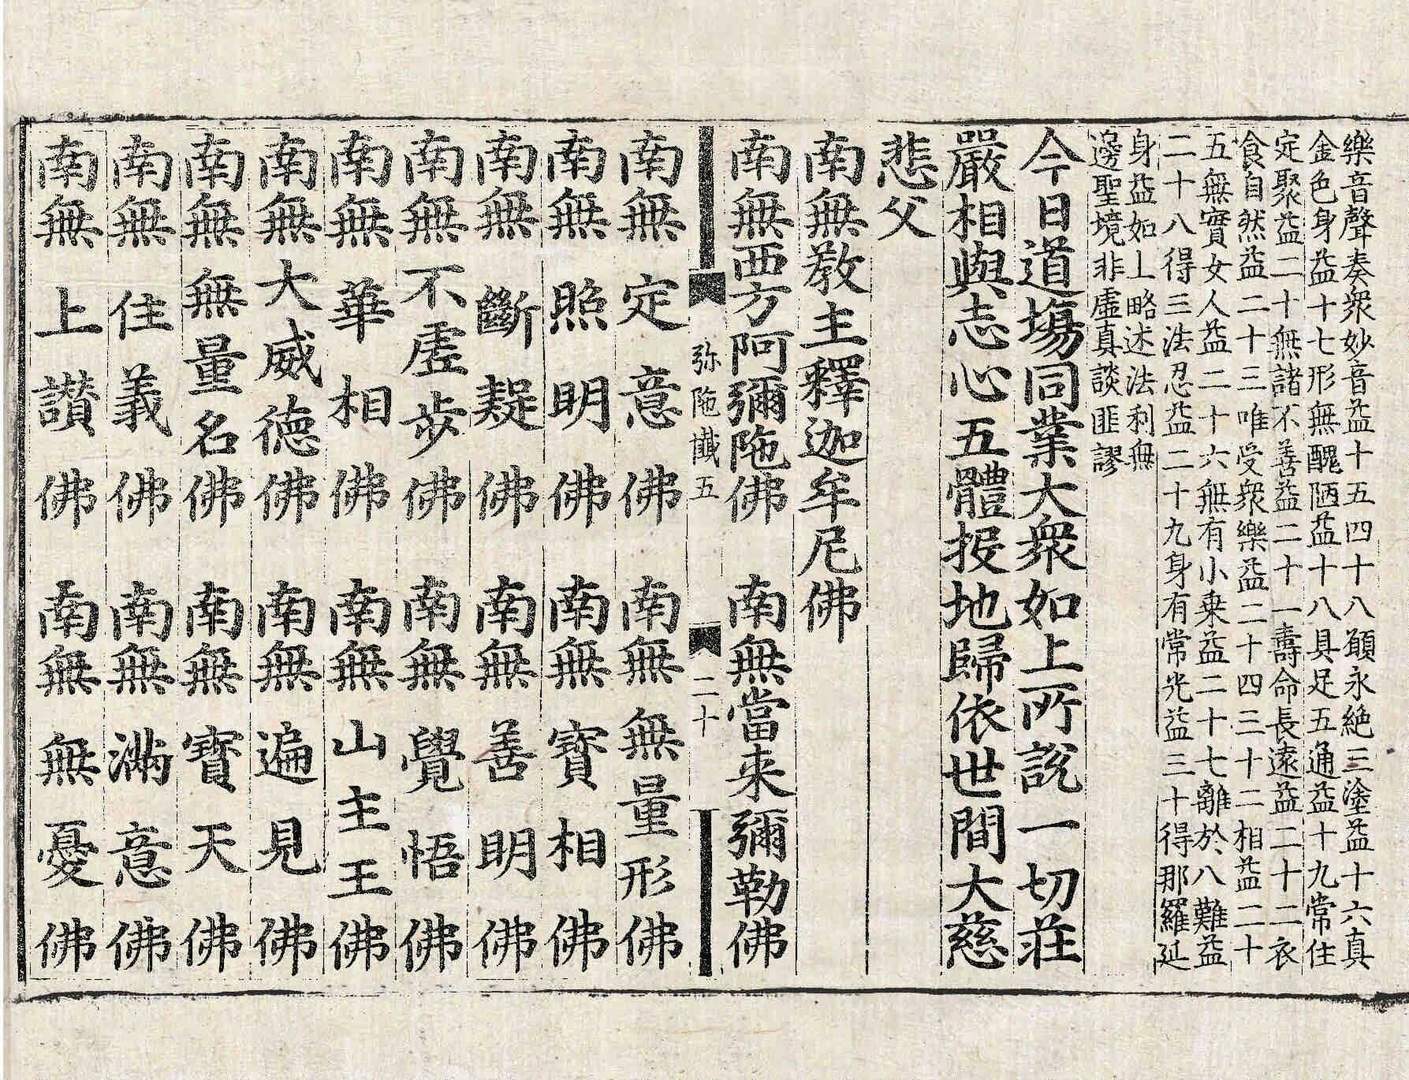 樂音聲奏衆妙音益十五四十八願永絶三塗益十六真
金色身益十七形無醜陋益十八具足五通益十九常住
定聚益二十無諸不善益二十一壽命長遠益二十二衣
食自然益二十三唯受衆樂益二十四三十二相益二十
五無實女人益二十六無有小乗益二十七離於八難益
二十八得三法忍益二十九身有常光益三十得那羅延
身益如上略述法利無
邊聖境非虛真談匪謬
今日道塲同業大衆如上所說一切莊
嚴相與志心五體投地歸依世間大慈
悲父
南無教主釋迦牟尼佛
南無西方阿彌陁佛 南無當来彌勒佛
弥陁懴五 二十
南無定意佛 南無無量形佛
南無照明佛 南無寳相佛
南無斷疑佛 南無善明佛
南無不虛步佛 南無覺悟佛
南無華相佛 南無山主王佛
南無大威德佛 南無遍見佛
南無無量名佛 南無寳天佛
南無住義佛 南無滿意佛
南無上讃佛 南無無憂佛